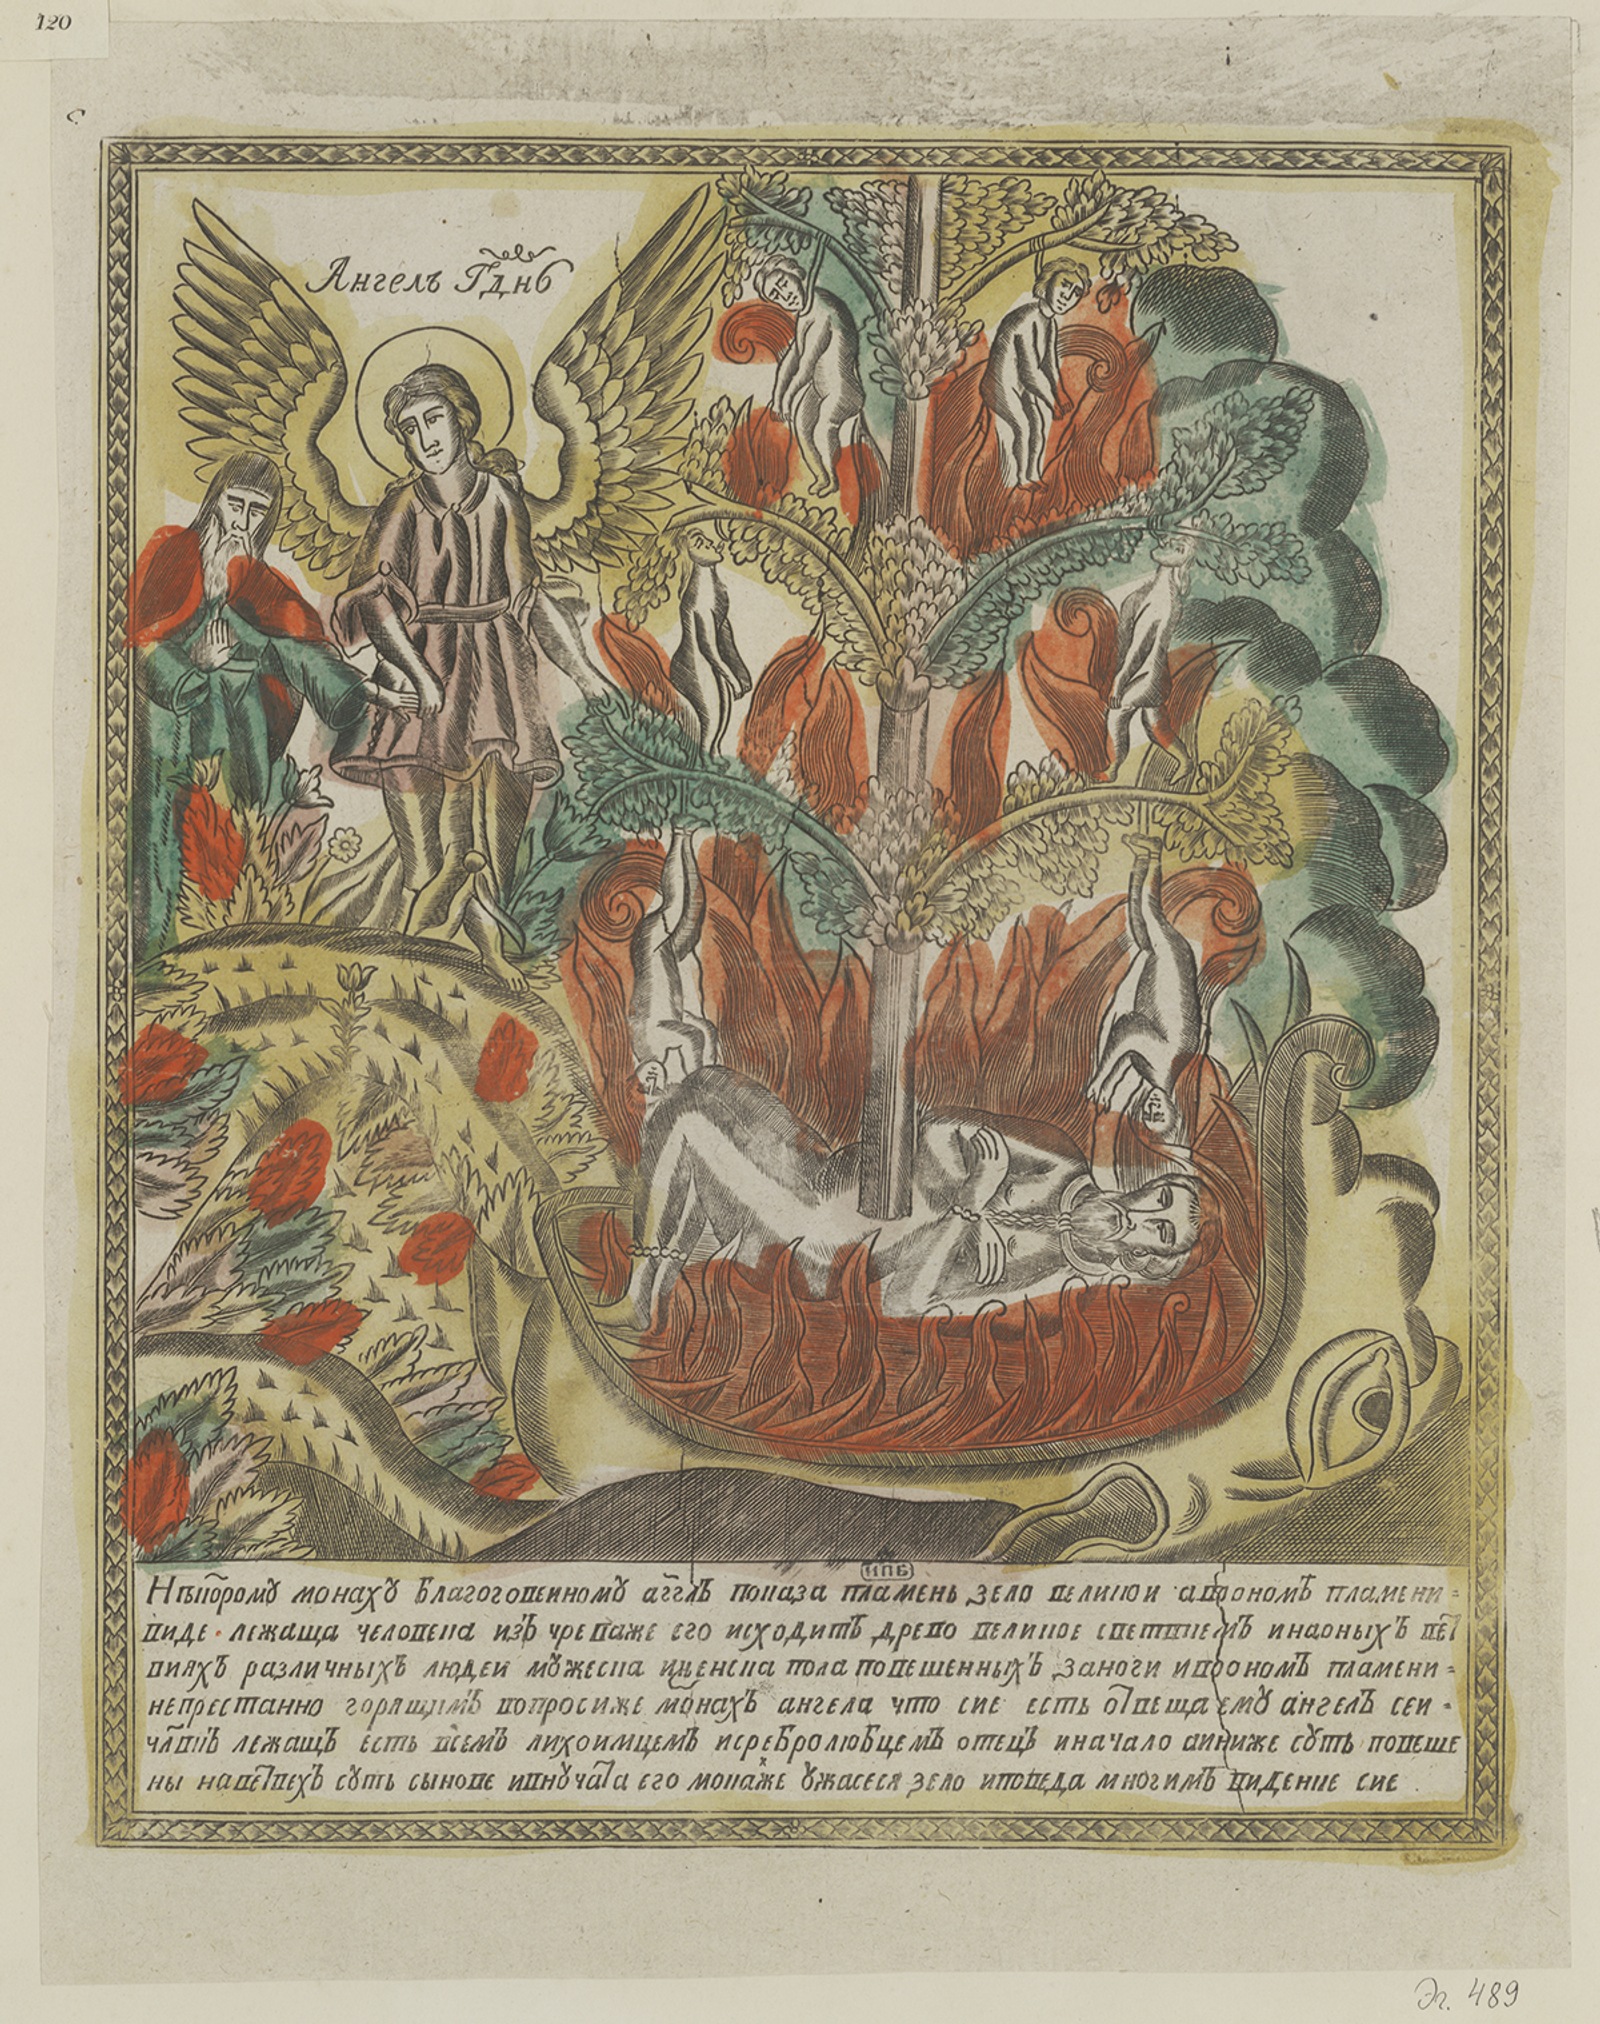 120
Ангелъ Г҃днь
Нѣкоромꙋ монахꙋ благоговеиномꙋ агглъ показа пламень зело великои авономъ пламени =
виде лежаща человека изъ чреваже его исходитъ древо великое светвиемъ инаоных вет
виях различныхъ людеи мꙋжеска иженска пола повешенныхъ заноги ивоономъ пламени =
непрестанно горящимъ вопросиже монахъ ангела что сие есть отвеща емꙋ ангелъ сеи =
члвкъ лежащъ есть всемъ лихоимцемъ исребролюбцемъ отецъ иначало аиниже сꙋть повеше
ны наветвехъ сꙋть сынове ивнꙋчата его монахже ꙋжасеся зело иповеда многимъ видение сие
ИПБ
Эл. 489